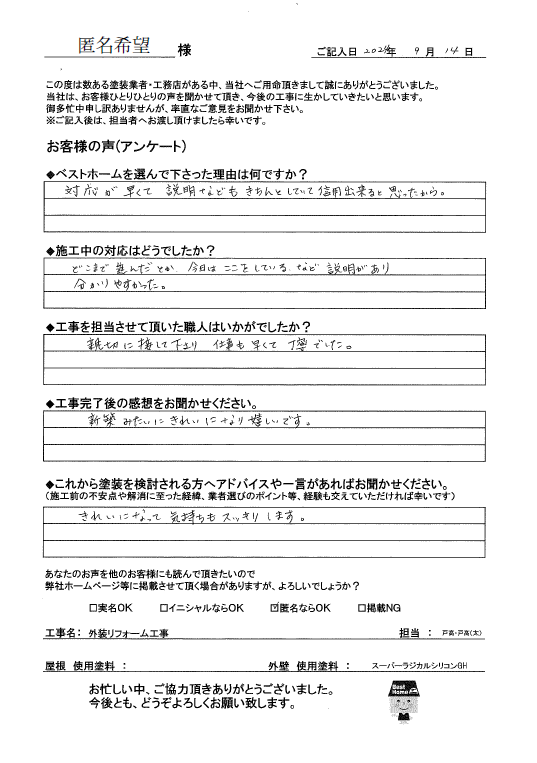 匿名希望 様
ご記入日 2024年 9 月 14 日
この度は数ある塗装業者・工務店がある中、当社へご用命頂きまして誠にありがとうございました。
当社は、お客様ひとりひとりの声を聞かせて頂き、今後の工事に生かしていきたいと思います。
御多忙中申し訳ありませんが、率直なご意見をお聞かせ下さい。
※ご記入後は、担当者へお渡し頂けましたら幸いです。
お客様の声(アンケート)
◆ベストホームを選んで下さった理由は何ですか？
対応が早くて 説明などもきちんとしていて信用出来ると思ったから。
◆施工中の対応はどうでしたか？
どこまで進んだとか、今日はここをしている、など説明があり
分かりやすかった。
◆工事を担当させて頂いた職人はいかがでしたか？
親切に接して下さり 仕事も早くて丁寧でした。
◆工事完了後の感想をお聞かせください。
新築みたいにきれいになり嬉しいです。
◆これから塗装を検討される方へアドバイスや一言があればお聞かせください。
(施工前の不安点や解消に至った経緯、業者選びのポイント等、経験も交えていただければ幸いです)
きれいになって 気持ちもスッキリします。
あなたのお声を他のお客様にも読んで頂きたいので
弊社ホームページ等に掲載させて頂く場合がありますが、よろしいでしょうか？
□実名OK □イニシャルならOK ☑匿名ならOK □掲載NG
工事名： 外装リフォーム工事 担当 ： 戸高・戸高(太)
屋根 使用塗料 ： 外壁 使用塗料 ： スーパーラジカルシリコンGH
お忙しい中、ご協力頂きありがとうございました。
今後とも、どうぞよろしくお願い致します。
Best Home